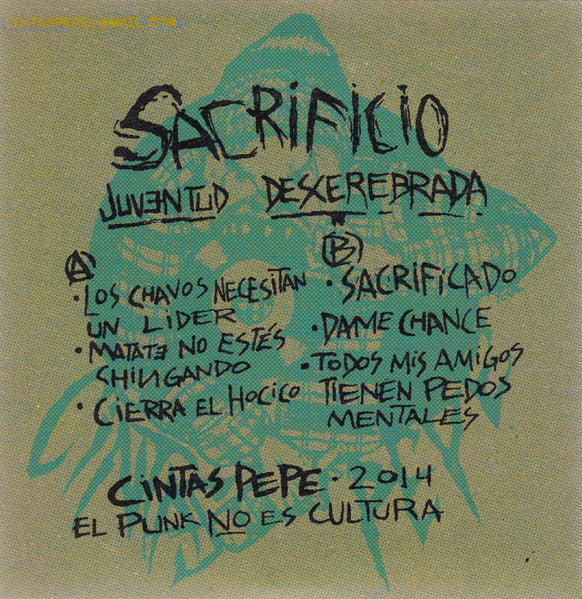 CINTASPEPE@GMAIL.COM
SACRIFICIO
JUVENTUD DESCEREBRADA
A
· LOS CHAVOS NECESITAN
UN LIDER
· MATATE NO ESTÉS
CHINGANDO
· CIERRA EL HOCICO
B
· SACRIFICADO
· DAME CHANCE
· TODOS MIS AMIGOS
TIENEN PEDOS
MENTALES
CINTAS PEPE · 2014
EL PUNK NO ES CULTURA